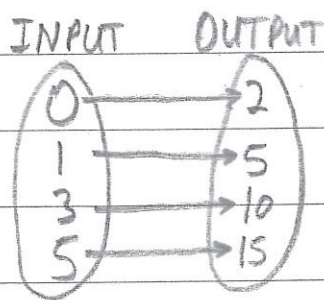 INPUT OUTPUT
0 2
1 5
3 10
5 15